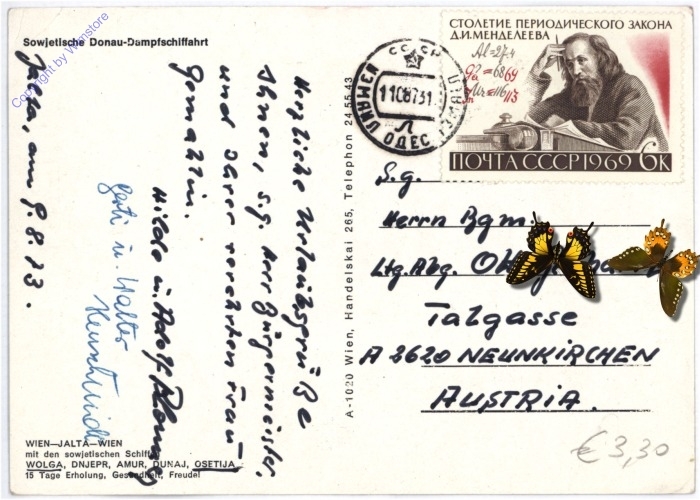 Copyright by Wienstore
Sowjetische Donau-Dampfschiffahrt
Jalta, am 9.8.73.
Herzliche Urlaubsgrüße
Ihnen, s.g. Herr Bürgermeister,
und Ihrer verehrten Frau
Gemahlin.
Hilde u. Adolf
Gerti u. Walter
WIEN—JALTA—WIEN
mit den sowjetischen Schiffen
WOLGA, DNJEPR, AMUR, DUNAJ, OSETIJA
15 Tage Erholung, Gesundheit, Freude!
A-1020 Wien, Handelskai 265, Telephon 24 55 43
СССР
ИЗМАИЛ
ОДЕС
СТОЛЕТИЕ ПЕРИОДИЧЕСКОГО ЗАКОНА
Д.И.МЕНДЕЛЕЕВА
ПОЧТА СССР 1969 6К
S.g.
Herrn Bgm.
Ltg.Abg.
Talgasse
A 2620 NEUNKIRCHEN
AUSTRIA.
€ 3,30